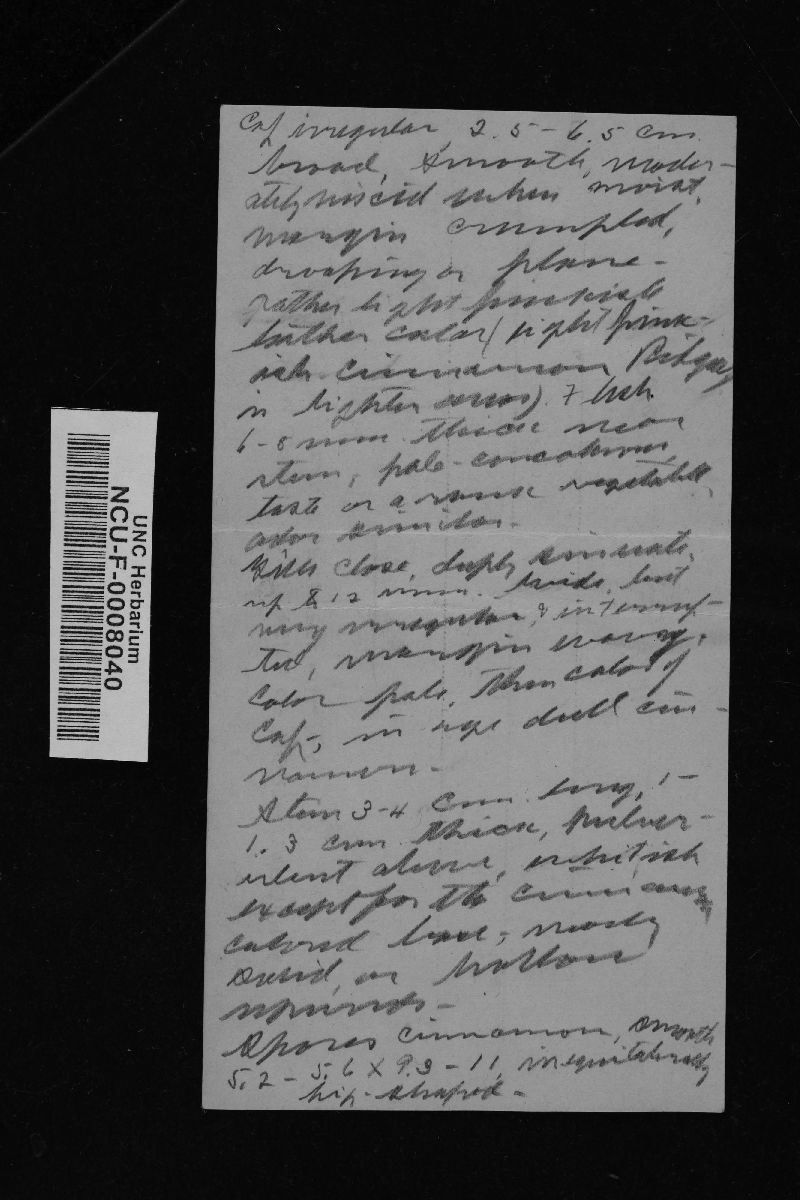 Cap irregular, 2.5-6.5 cm.
broad, smooth, moder-
ately viscid when moist,
margin crumpled,
drooping or plane-
rather light pinkish
leather color (light pink-
ish cinnamon Ridgway
in lighter areas). Flesh
6-8 mm thick near
stem, pale-concolorous,
taste of a rank vegetable,
odor similar.
Gills close, deeply sinuate,
up to 12 mm. wide, but
very irregular & interrup-
ted, margin wavy,
color pale, then color of
Cap, in age dull cin-
namon-
Stem 3-4 cm. long, 1-
1.3 cm thick, pulver-
ulent above, whitish
except for the cinnamon
colored base, nearly
solid, or hollow
upwards-
Spores cinnamon, smooth
5.2-5.6 X 9.3-11, inequilaterally
pip-shaped-
UNC Herbarium
NCU-F-0008040